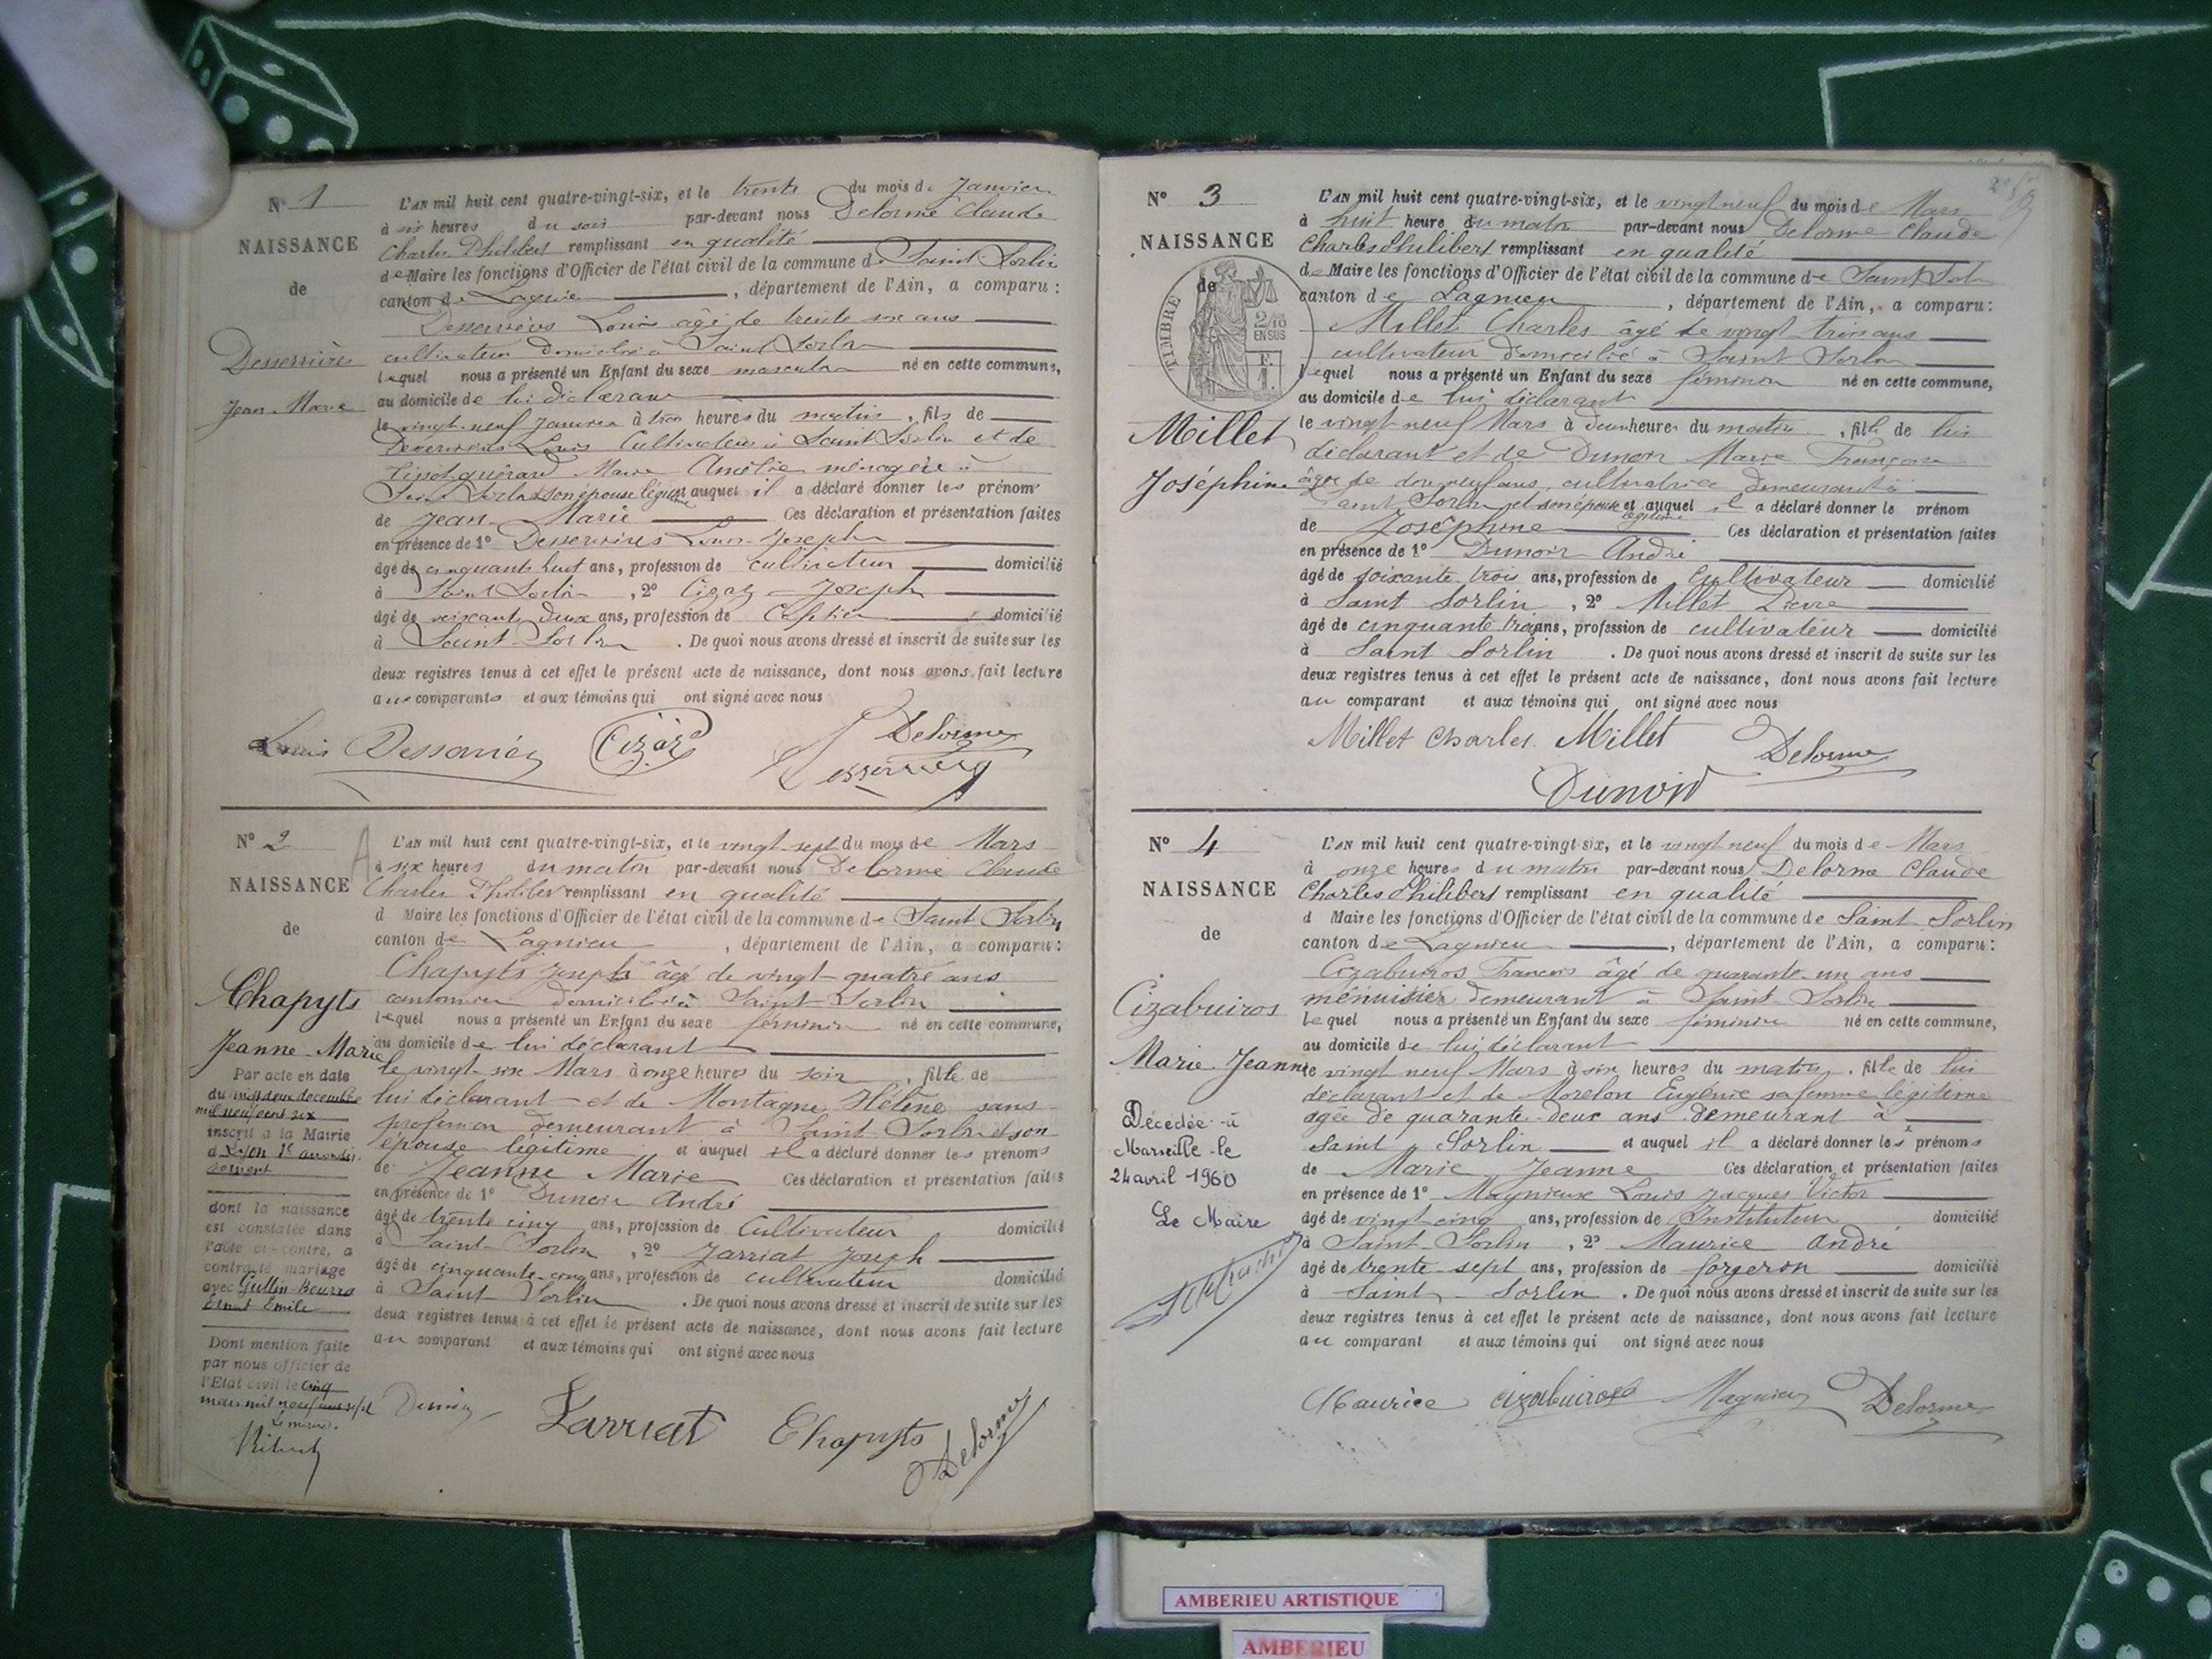 N° 1
NAISSANCE
de
Desserrières
Jean Marie
L'AN mil huit cent quatre-vingt-six, et le trente du mois de Janvier
à six heures du soir par-devant nous Delorme Claude
Charles Philibert remplissant en qualité
de Maire les fonctions d'Officier de l'état civil de la commune de Saint Sorlin
canton de Lagnieu, département de l'Ain, a comparu :
Louis âgé de trente six ans
cultivateur domicilié à Saint Sorlin
lequel nous a présenté un Enfant du sexe masculin né en cette commune,
au domicile de lui déclarant
le vingt-neuf Janvier à trois heures du matin, fils de
Louis Cultivateur à Saint Sorlin et de
Marie Amélie ménagère à
Saint Sorlin son épouse légitime et auquel il a déclaré donner les prénoms
de Jean Marie Ces déclaration et présentation faites
en présence de 1° Louis Joseph
âgé de cinquante huit ans, profession de cultivateur domicilié
à Saint Sorlin, 2° Joseph
âgé de soixante deux ans, profession de domicilié
à Saint-Sorlin. De quoi nous avons dressé et inscrit de suite sur les
deux registres tenus à cet effet le présent acte de naissance, dont nous avons fait lecture
aux comparants et aux témoins qui ont signé avec nous
Louis Cizaz Delorme
N° 2
NAISSANCE
de
Chapyts
Jeanne-Marie
Par acte en date
du vingt deux décembre
mil neuf cent six
inscrit à la Mairie
d Lyon
dont la naissance
est constatée dans
l'acte ci-contre, a
contracté mariage
avec Gullin
Ernest Emile
Dont mention faite
par nous officier de
l'Etat civil le cinq
mars mil neuf cent sept
Le maire.
L'AN mil huit cent quatre-vingt-six, et le vingt-sept du mois de Mars
à six heures du matin par-devant nous Delorme Claude
Charles Philibert remplissant en qualité
d Maire les fonctions d'Officier de l'état civil de la commune de Saint Sorlin
canton de Lagnieu, département de l'Ain, a comparu :
Chapyts Joseph âgé de vingt-quatre ans
cantonnier domicilié à Saint-Sorlin
lequel nous a présenté un Enfant du sexe féminin né en cette commune,
au domicile de lui déclarant
le vingt-six Mars à onze heures du soir, fille de
lui déclarant et de Montagne Hélène sans
profession demeurant à Saint-Sorlin et son
épouse légitime et auquel il a déclaré donner les prénoms
de Jeanne Marie Ces déclaration et présentation faites
en présence de 1° Dunoir André
âgé de trente cinq ans, profession de Cultivateur domicilié
à Saint-Sorlin, 2° Jarriat Joseph
âgé de cinquante-cinq ans, profession de cultivateur domicilié
à Saint-Sorlin. De quoi nous avons dressé et inscrit de suite sur les
deux registres tenus à cet effet le présent acte de naissance, dont nous avons fait lecture
au comparant et aux témoins qui ont signé avec nous
Jarriat Chapyts Delorme
N° 3
NAISSANCE
de
TIMBRE
2/10
EN SUS
Millet
Joséphine
L'AN mil huit cent quatre-vingt-six, et le vingt neuf du mois de Mars
à huit heure du matin par-devant nous Delorme Claude
Charles Philibert remplissant en qualité
de Maire les fonctions d'Officier de l'état civil de la commune de Saint Sorlin
canton de Lagnieu, département de l'Ain, a comparu :
Millet Charles âgé de vingt trois ans
cultivateur domicilié à Saint Sorlin
lequel nous a présenté un Enfant du sexe féminin né en cette commune,
au domicile de lui déclarant
le vingt-neuf Mars à deux heures du matin, fille de lui
déclarant et de Dunoir Marie Françoise
âgée de dix neuf ans, cultivatrice demeurant à
Saint Sorlin et son épouse légitime et auquel il a déclaré donner le prénom
de Joséphine Ces déclaration et présentation faites
en présence de 1° Dunoir André
âgé de soixante-trois ans, profession de Cultivateur domicilié
à Saint Sorlin, 2° Millet Pierre
âgé de cinquante trois ans, profession de cultivateur domicilié
à Saint Sorlin. De quoi nous avons dressé et inscrit de suite sur les
deux registres tenus à cet effet le présent acte de naissance, dont nous avons fait lecture
au comparant et aux témoins qui ont signé avec nous
Millet Charles. Millet Delorme
Dunoir
N° 4
NAISSANCE
de
Cizabuiros
Marie Jeanne
Décédée à
Marseille le
24 avril 1960
Le Maire
L'AN mil huit cent quatre-vingt-six, et le vingt neuf du mois de Mars
à onze heures du matin par-devant nous Delorme Claude
Charles Philibert remplissant en qualité
d Maire les fonctions d'Officier de l'état civil de la commune de Saint Sorlin
canton de Lagnieu, département de l'Ain, a comparu :
Cizabuiros François âgé de quarante un ans
menuisier demeurant à Saint-Sorlin
Lequel nous a présenté un Enfant du sexe féminin né en cette commune,
au domicile de lui déclarant
le vingt neuf Mars à six heures du matin, fille de lui
déclarant et de Morelon Eugénie sa femme légitime
agée de quarante deux ans demeurant à
Saint Sorlin et auquel il a déclaré donner les prénoms
de Marie Jeanne Ces déclaration et présentation faites
en présence de 1° Magnieux Louis Jacques Victor
âgé de vingt-cinq ans, profession de Instituteur domicilié
à Saint-Sorlin, 2° Maurice André
âgé de trente-sept ans, profession de forgeron domicilié
à Saint-Sorlin. De quoi nous avons dressé et inscrit de suite sur les
deux registres tenus à cet effet le présent acte de naissance, dont nous avons fait lecture
au comparant et aux témoins qui ont signé avec nous
Maurice Cizabuiros Magnieux Delorme
AMBERIEU ARTISTIQUE
AMBERIEU